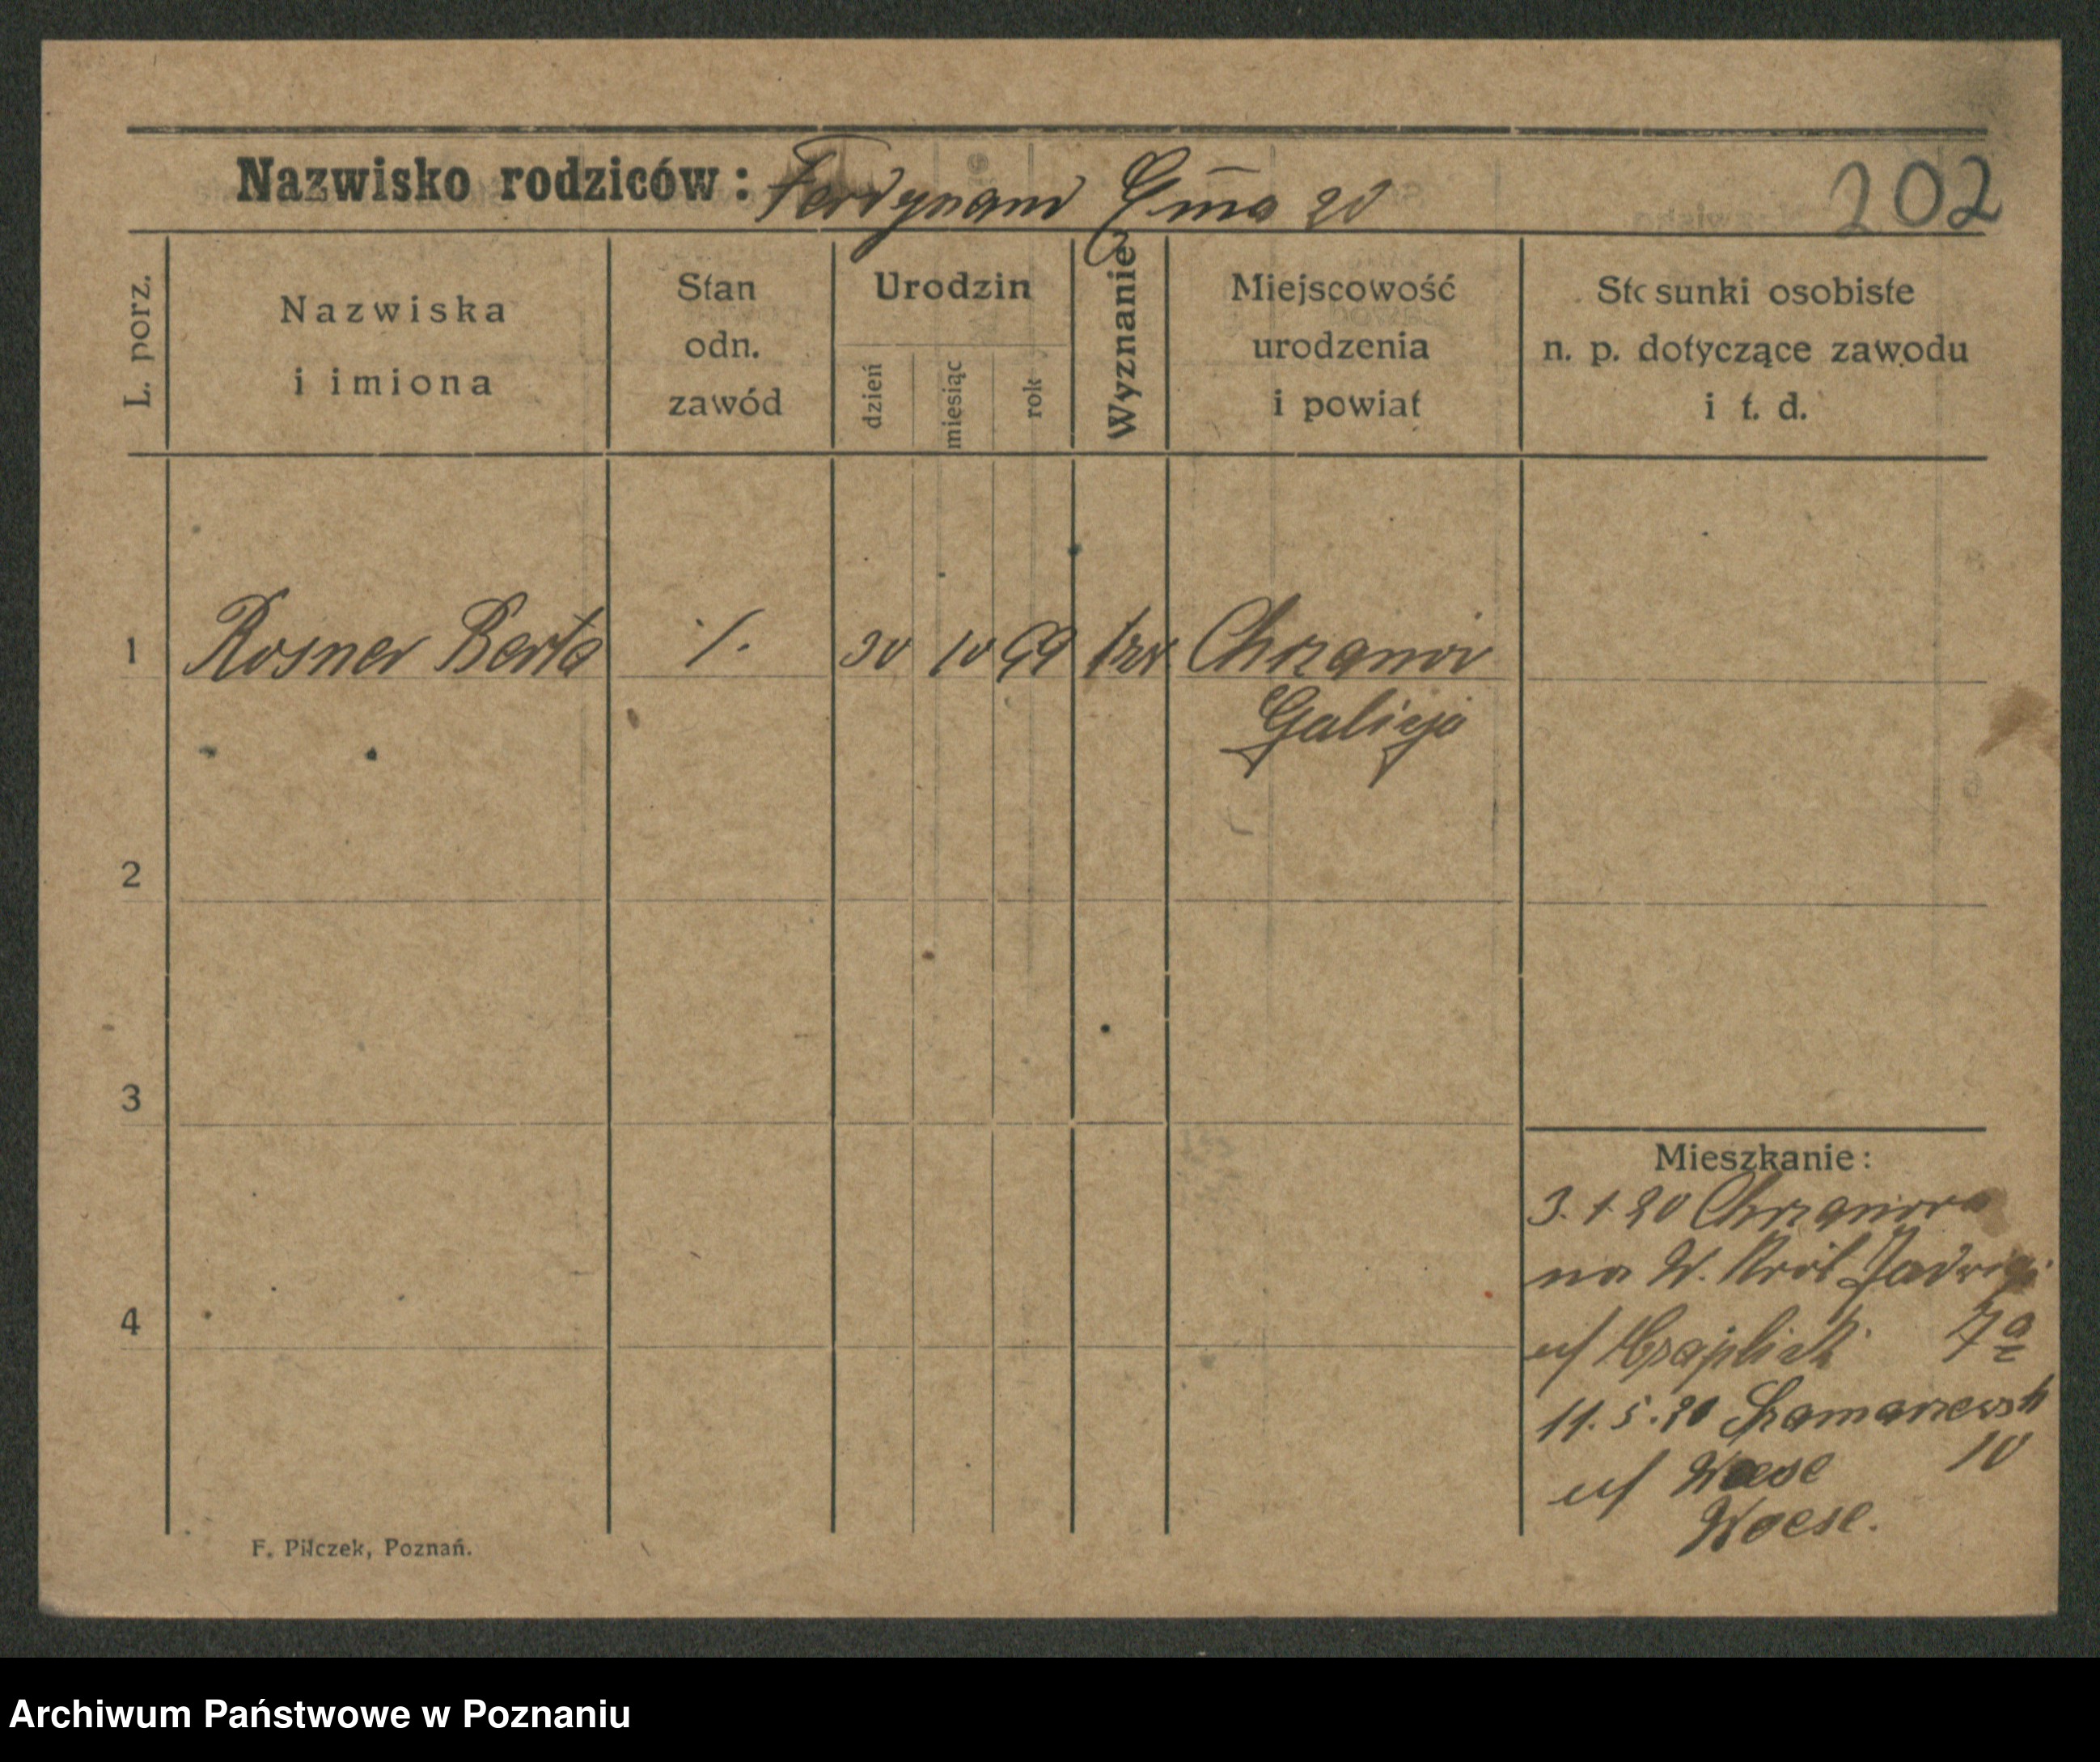 Nazwisko rodziców: Ferdynand 20 202
L. porz.
Nazwiska
i imiona
Stan
odn.
zawód
Urodzin
dzień
miesiąc
rok
Wyznanie
Miejscowość
urodzenia
i powiat
Stosunki osobiste
n. p. dotyczące zawodu
i t. d.
1 Rosner Berta ./. 30 10 99 Chrzanów
Galicja
2
3
4
Mieszkanie:
3.1.20 Chrzanowa
na W. Król Jadwigi
u/ 7a
11.5.20
u/ Woese 10
Woese.
F. Pilczek, Poznań.
Archiwum Państwowe w Poznaniu